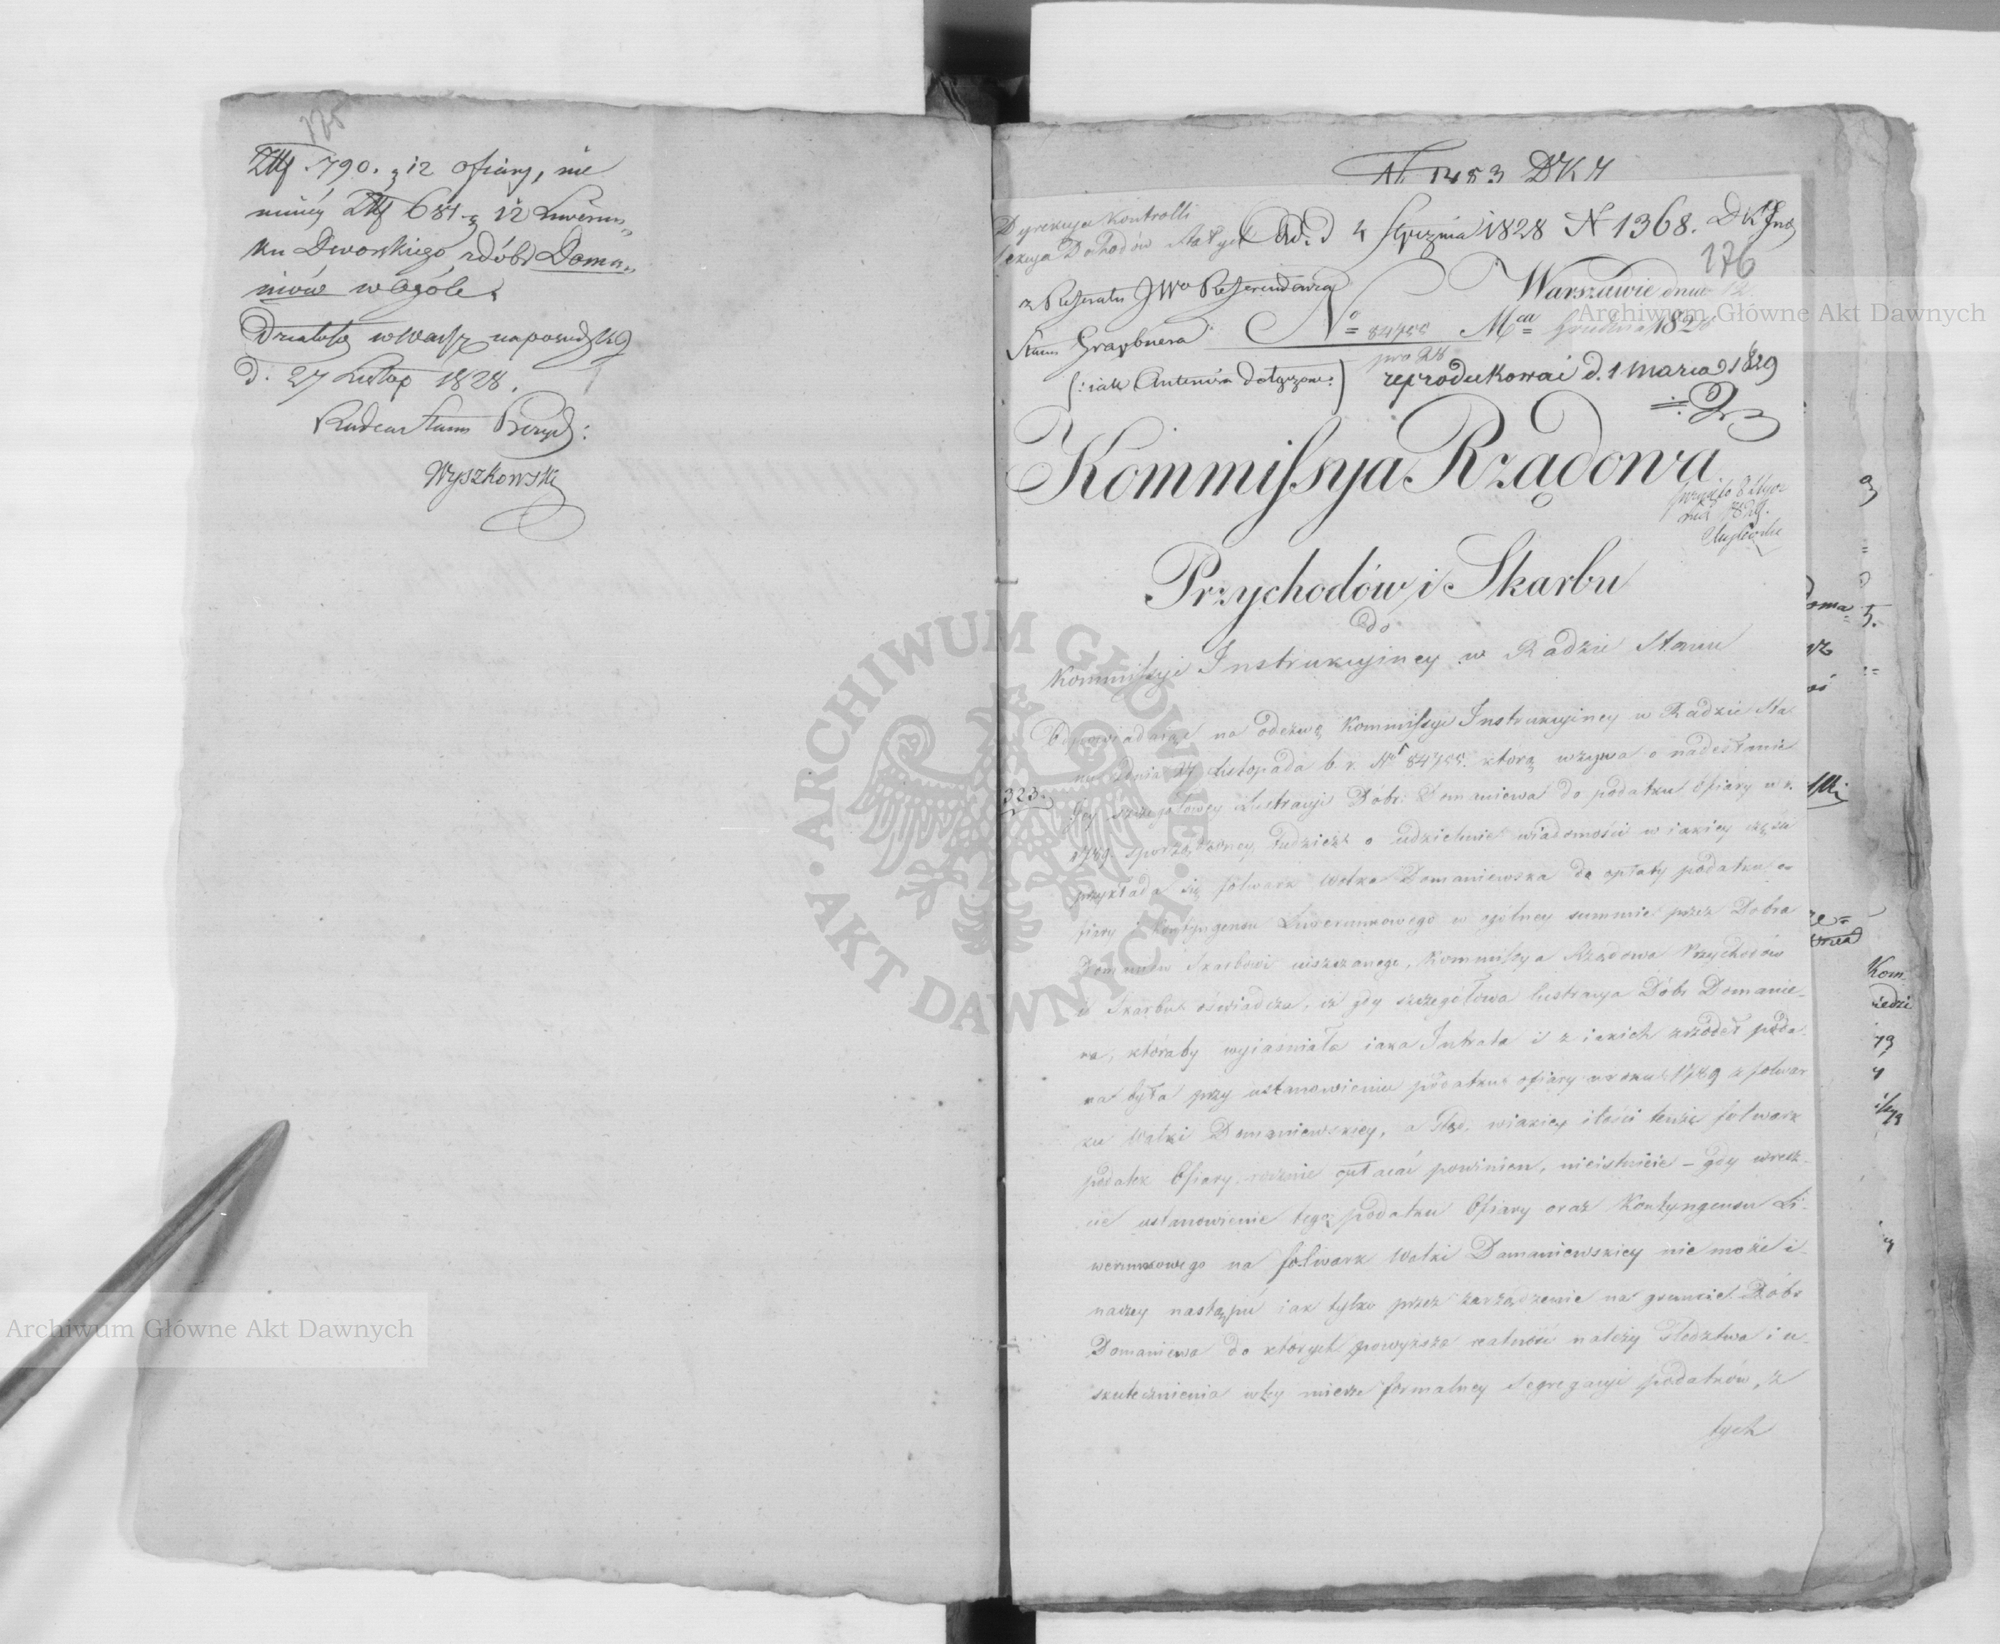 175
Złł. 790. g 12 Ofiary, nie
mniéy Złł 684. g 12 Liwerun„
ku Dworskiego zdóbr Doma„
niów w Ogóle.
Działo się w Warsz na posiedz
d. 27 Listop 1828.
Radca Stanu Prezyd:
Wyszkowski
N. 1483 DK4
Dyrekcya Kontrolli
Sekcya Dochodów Stałych
d 4 Stycznia 1828 N 1368.
176
z Referatu JWo Referendarza
Stanu Graybnera
w Warszawie dnia 12
No 84755 Mca Grudnia 1828
pro 28
(: iak Antecessa dołączone :)
reprodukować d. 1 marca 1829
Kommissya Rządowa
8 Stycz
nia 1829.
Przychodów i Skarbu
do
Kommissyi Instrukcyiney w Radzie Stanu
Odpowiadając na odezwę Kommissyi Instrukcyiney w Radzie Sta
nu z dnia 27 Listopada b. r. No 84755. którą wzywa o nadesłanie
323.
Jey szczegółowey Lustracyi Dóbr Domaniewa do podatku ofiary w r.
1789. sporządzoney, tudzież o udzielenie wiadomości w iakiey części
przykłada się folwark Wolka Domaniewska do opłaty podatku o-
fiary i Kontyngensu Liwerunkowego w ogólney summie przez Dobra
Domaniew Skarbowi uiszczanego, Kommissya Rządowa Przychodów
i Skarbu oświadcza, iż gdy szczegółowa lustracya Dóbr Domanie-
wa, któraby wyiaśniała iaka Intrata i z iakich źrzódeł poda-
na była przy ustanowieniu podatku ofiary w roku 1789 z folwar
ku Wolki Domaniewskiey, a ztąd, w iakiey ilości tenże folwark
podatek Ofiary rocznie opłacać powinien, nieistnieie – gdy wresz-
cie ustanowienie tego podatku Ofiary oraz Kontyngensu Li-
werunkowego na folwark Wolki Domaniewskiey nie może i-
naczey nastąpić iak tylko przez zarządzenie na gruncie Dóbr
Domaniewa do których powyższa realność należy śledztwa i u-
skutecznienia w tey mierze formalney Segregacyi podatków, z
tych